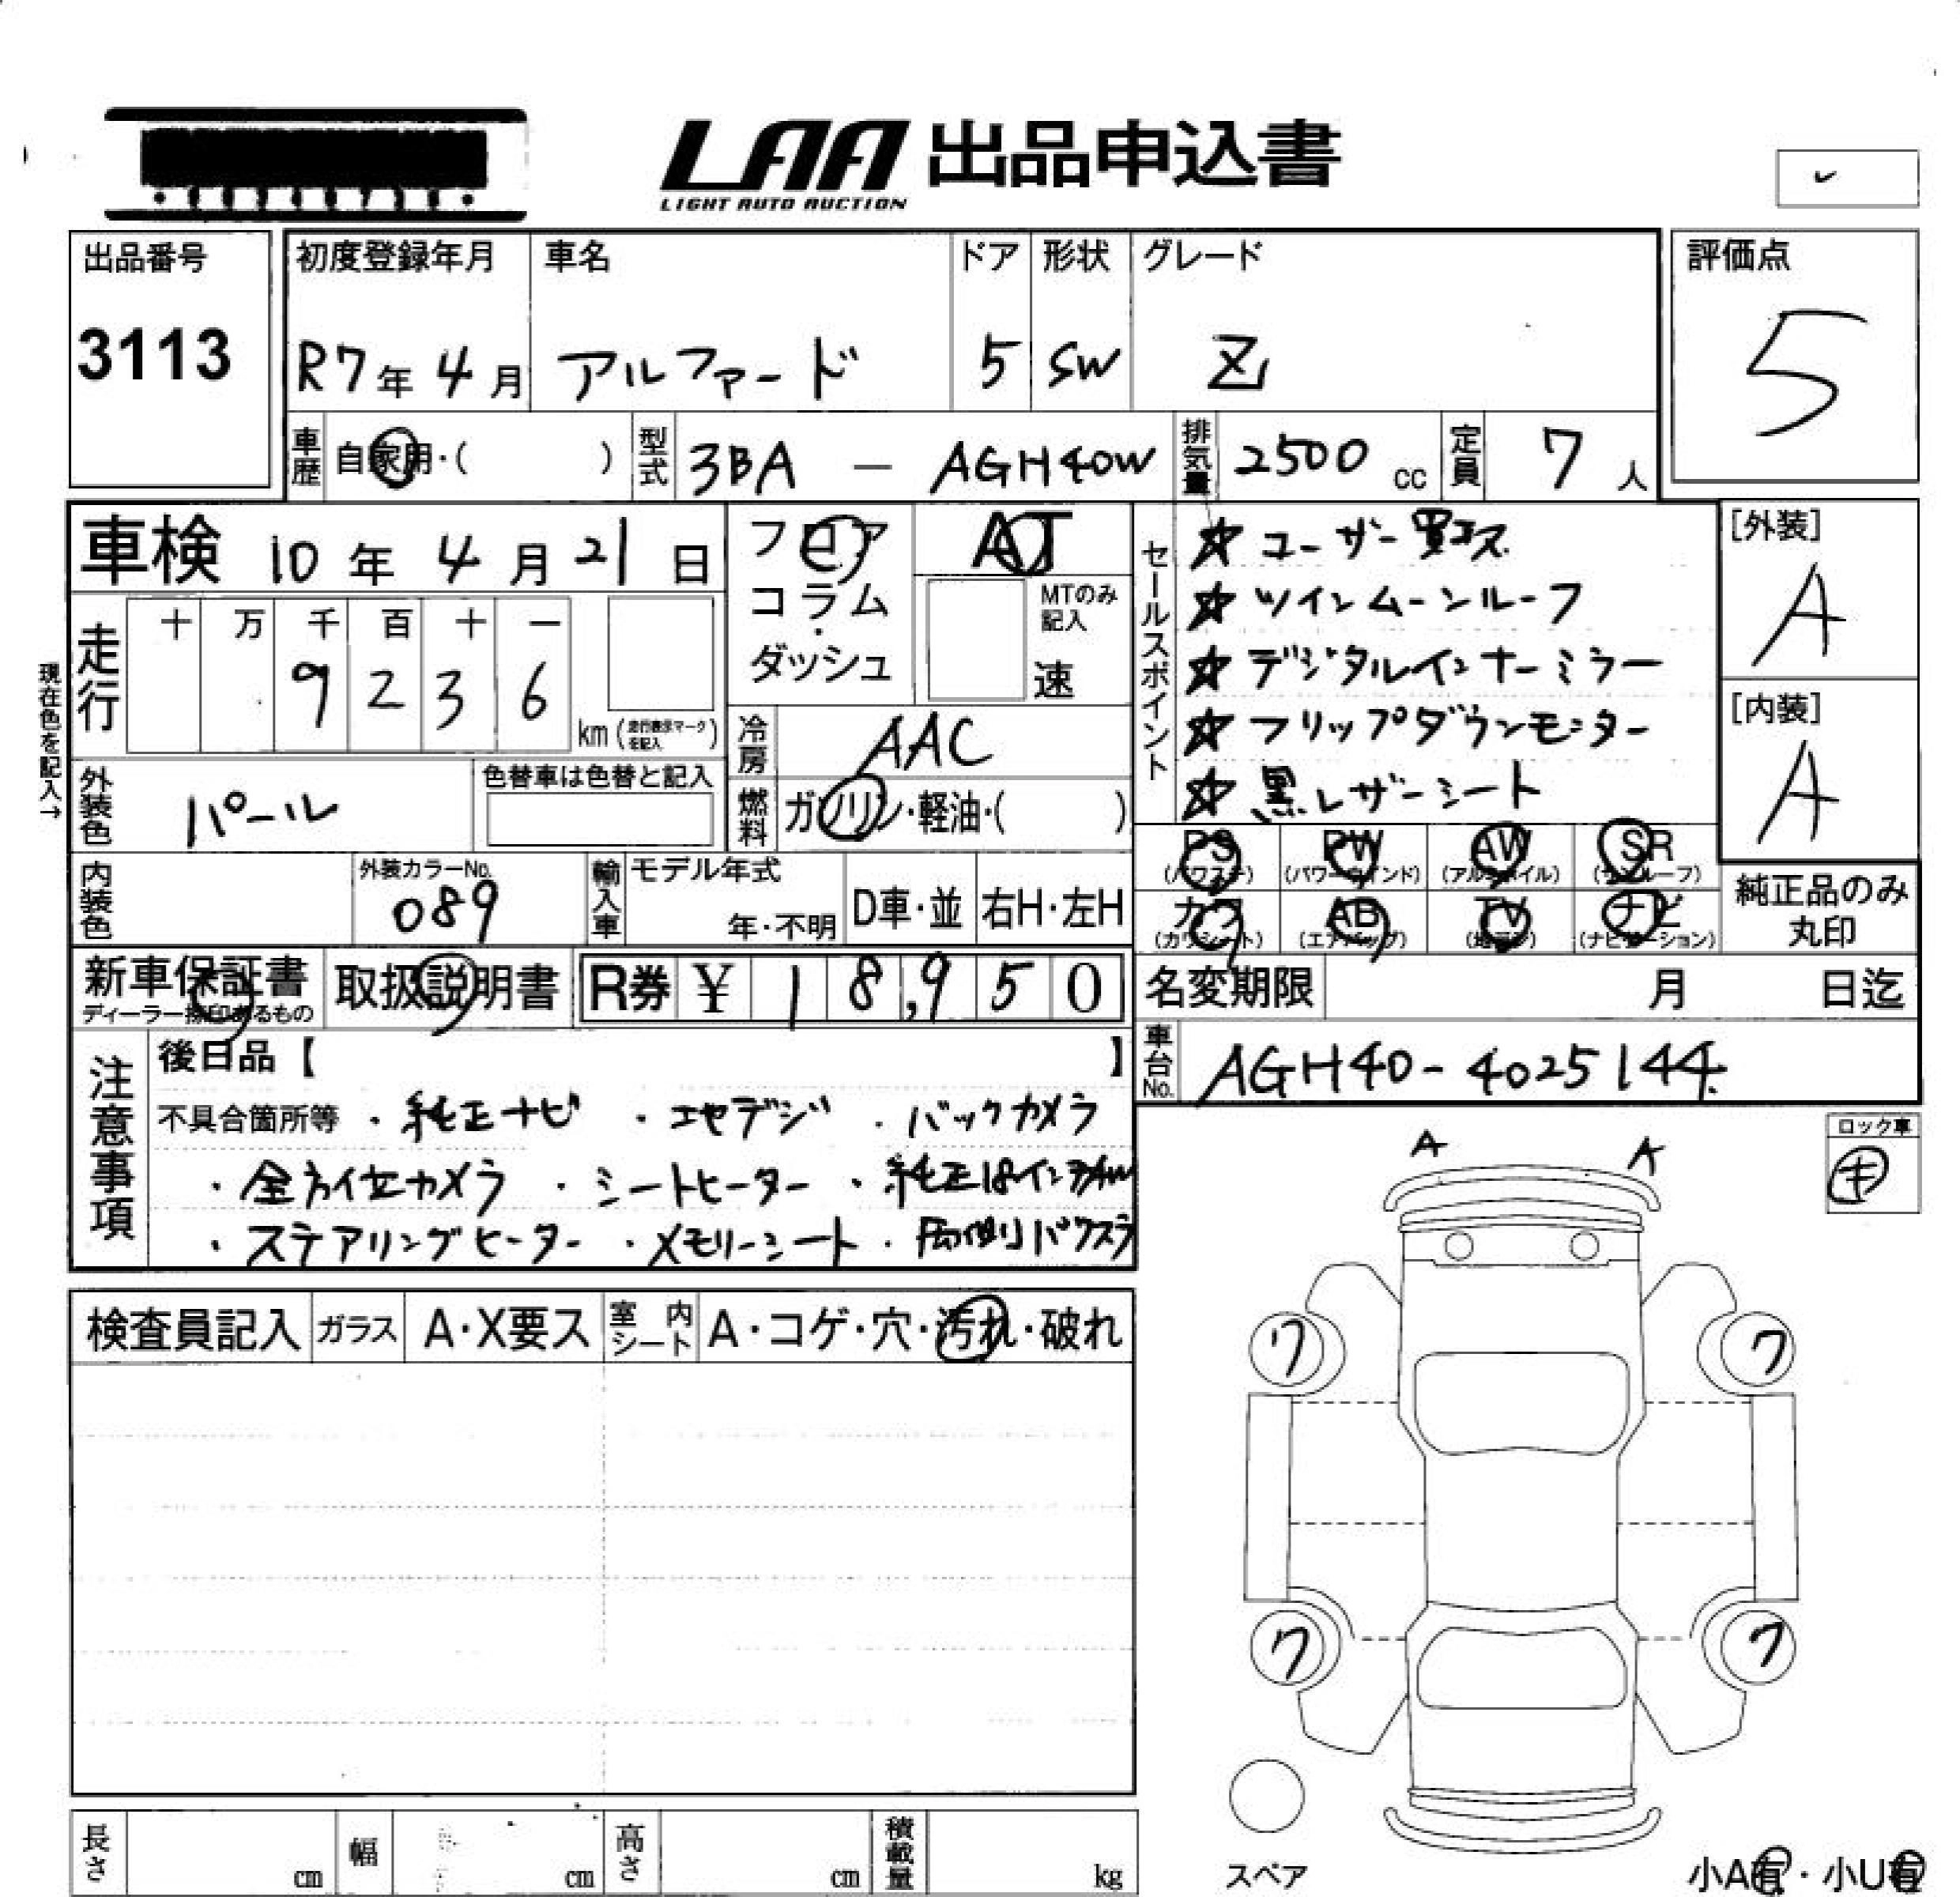 LAA 出品申込書
LIGHT AUTO AUCTION
出品番号
3113
初度登録年月 車名 ドア 形状 グレード
R7年4月 アルファード 5 SW Z
評価点
5
車歴 自家用・( ) 型式 3BA - AGH40W 排気量 2500 cc 定員 7 人
車検 10年4月21日
フロア
コラム
・
ダッシュ
AT
MTのみ記入
速
走行 十 万 千 百 十 一
9 2 3 6 km(走行表示マークを記入)
現在色を記入→
冷房 AAC
燃料 ガソリン・軽油・( )
外装色 パール
色替車は色替と記入
内装色
外装カラーNo.
089
輸入車 モデル年式
年・不明
D車・並
右H・左H
セールスポイント
☆ユーザー買エス
☆ツインムーンルーフ
☆デジタルインナーミラー
☆フリップダウンモニター
☆黒レザーシート
[外装]
A
[内装]
A
PS (パワステ) PW (パワーウインド) AW (アルミホイル) SR (サンルーフ)
カワ (カワシート) AB (エアバック) TV (地デジ) ナビ (ナビゲーション)
純正品のみ
丸印
新車保証書
ディーラー捺印あるもの
取扱説明書
R券 ¥ 1 8,9 5 0
名変期限 月 日迄
車台No. AGH40-4025144
注意事項
後日品【 】
不具合箇所等 ・純正ナビ ・エセデジ ・バックカメラ
・全方位カメラ ・シートヒーター ・純正18インチAW
・ステアリングヒーター ・メモリーシート ・両側パワスラ
ロック車
キ
A A
検査員記入 ガラス A・X要ス 室内シート A・コゲ・穴・汚れ・破れ
ワ ワ
ワ ワ
スペア
長さ cm 幅 cm 高さ cm 積載量 kg
小A有・小U有